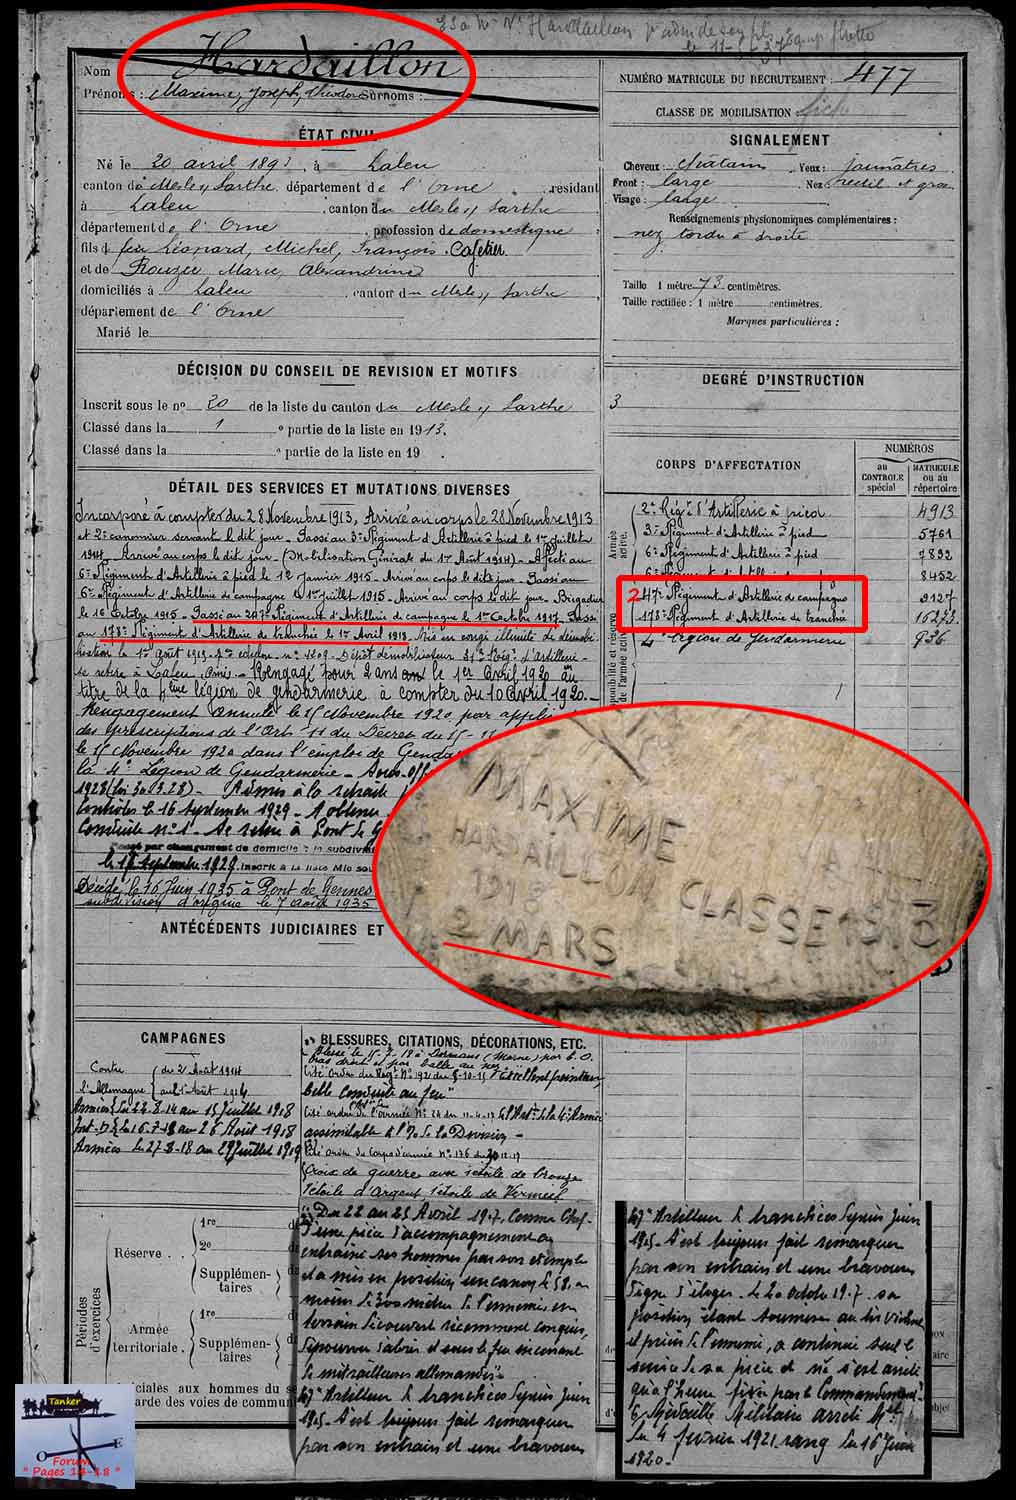 Hardaillon
Nom
Prénoms : Maxime, Joseph, Surnoms :
NUMÉRO MATRICULE DU RECRUTEMENT : 477
CLASSE DE MOBILISATION
ÉTAT CIVIL
Né le 20 avril 1893, à Laleu
canton de Mesle s/ Sarthe, département de l'Orne, résidant
à Laleu, canton du Mesle s/ Sarthe
département de l'Orne, profession de domestique
fils de feu Léonard, Michel, François Cafetier
et de Rouzée Marie, Alexandrine
domiciliés à Laleu, canton du Mesle s/ Sarthe
département de l'Orne
Marié le
SIGNALEMENT
Cheveux : châtain Yeux : jaunâtres
Front : large Nez : rectil et gros
Visage : large
Renseignements physionomiques complémentaires :
nez tordu à droite
Taille 1 mètre 73 centimètres.
Taille rectifiée : 1 mètre centimètres.
Marques particulières :
DÉCISION DU CONSEIL DE REVISION ET MOTIFS
Inscrit sous le nº 20 de la liste du canton du Mesle s/ Sarthe
Classé dans la 1 º partie de la liste en 1913.
Classé dans la º partie de la liste en 19 .
DEGRÉ D'INSTRUCTION
3
DÉTAIL DES SERVICES ET MUTATIONS DIVERSES
Incorporé à compter du 28 Novembre 1913, Arrivé au corps le 28 Novembre 1913
et 2e canonnier servant le dit jour. Passé au 3e Régiment d'Artillerie à pied le 1er Juillet
1914. Arrivé au corps le dit jour. (Mobilisation Générale du 1er Août 1914) Affecté au
6e Régiment d'Artillerie à pied le 12 Janvier 1915. Arrivé au corps le dit jour. Passé au
6e Régiment d'Artillerie de campagne le 1er Juillet 1915. Arrivé au corps le dit jour. Brigadier
le 16 Octobre 1915. Passé au 247e Régiment d'Artillerie de campagne le 1er Octobre 1917. Passé
au 178e Régiment d'Artillerie de tranchée le 1er Avril 1918. Mis en congé illimité de démobi-
lisation le 1er Août 1919. Dépôt démobilisateur 31e Rég. d'Artillerie
se retire à Laleu, Orne. Rengagé pour 2 ans le 1er Avril 1920 au
titre de la 4ème légion de gendarmerie à compter du 10 Avril 1920.
Rengagement annulé le 15 Novembre 1920 par appli
des prescriptions de l'Art. 11 du Décret du 15-11
le 15 Novembre 1920 dans l'emploi de Gend
la 4e Légion de Gendarmerie
1928 Admis à la retraite
contrôles le 16 Septembre 1929
Se retire à Pont de G
par changement de domicile à la subdivi
le 17 Septembre 1929
Décédé le 16 Juin 1935 à Pont de Gennes
subdivision d'origine le 7 Août 1935
CORPS D'AFFECTATION
NUMÉROS
au CONTROLE spécial
MATRICULE ou au répertoire
Armée active.
2e Régt d'Artillerie à pied 4913
3e Régiment d'Artillerie à pied 5761
6e Régiment d'Artillerie à pied 7892
8452
247e Régiment d'Artillerie de campagne 9127
178e Régiment d'Artillerie de tranchée 16273
4e Légion de Gendarmerie 936
MAXIME
HARDAILLON
1918 CLASSE 1913
2 MARS
ANTÉCÉDENTS JUDICIAIRES ET
CAMPAGNES
Contre du 2 Août 1914
l'Allemagne
Armées du 22-8-14 au 15 Juillet 1918
Int. du 16-7-18 au 26 Août 1918
Armées du 27-8-18 au 29 Juillet 1919
BLESSURES, CITATIONS, DÉCORATIONS, ETC.
Blessé le 15-7-18 à Dormans (Marne)
belle conduite au feu"
assimilable à l'O. de la Division
Croix de guerre avec étoile de bronze
étoile d'Argent, étoile de Vermeil
"Du 22 au 25 Avril 1917, Comme Chef
d'une pièce d'accompagnement a
entrainé ses hommes par son exemple
et a mis en position un canon de 58, à
moins de 300 mètres de l'ennemi, en
terrain découvert récemment conquis,
dépourvu d'abris et sous le feu incessant
de mitrailleuses allemandes"
Artilleur de tranchées depuis Juin
1915. S'est toujours fait remarquer
par son entrain et une bravoure
Artilleur de tranchées depuis Juin
1915. S'est toujours fait remarquer
par son entrain et une bravoure
digne d'éloges. Le 20 octobre 1917. sa
position étant soumise au tir violent
et précis de l'ennemi, a continué seul le
service de sa pièce et ne s'est arrêté
qu'à l'heure fixée par le Commandement
Médaille Militaire arrêté
du 4 février 1921, rang du 16 Juin
1920.
Périodes d'exercices
Réserve
1re
2e
Supplémen-
taires
Armée
territoriale.
1re
Supplémen-
taires
ciales aux hommes du se
garde des voies de commun
Tanker
O E
Forum
" Pages 14-18 "